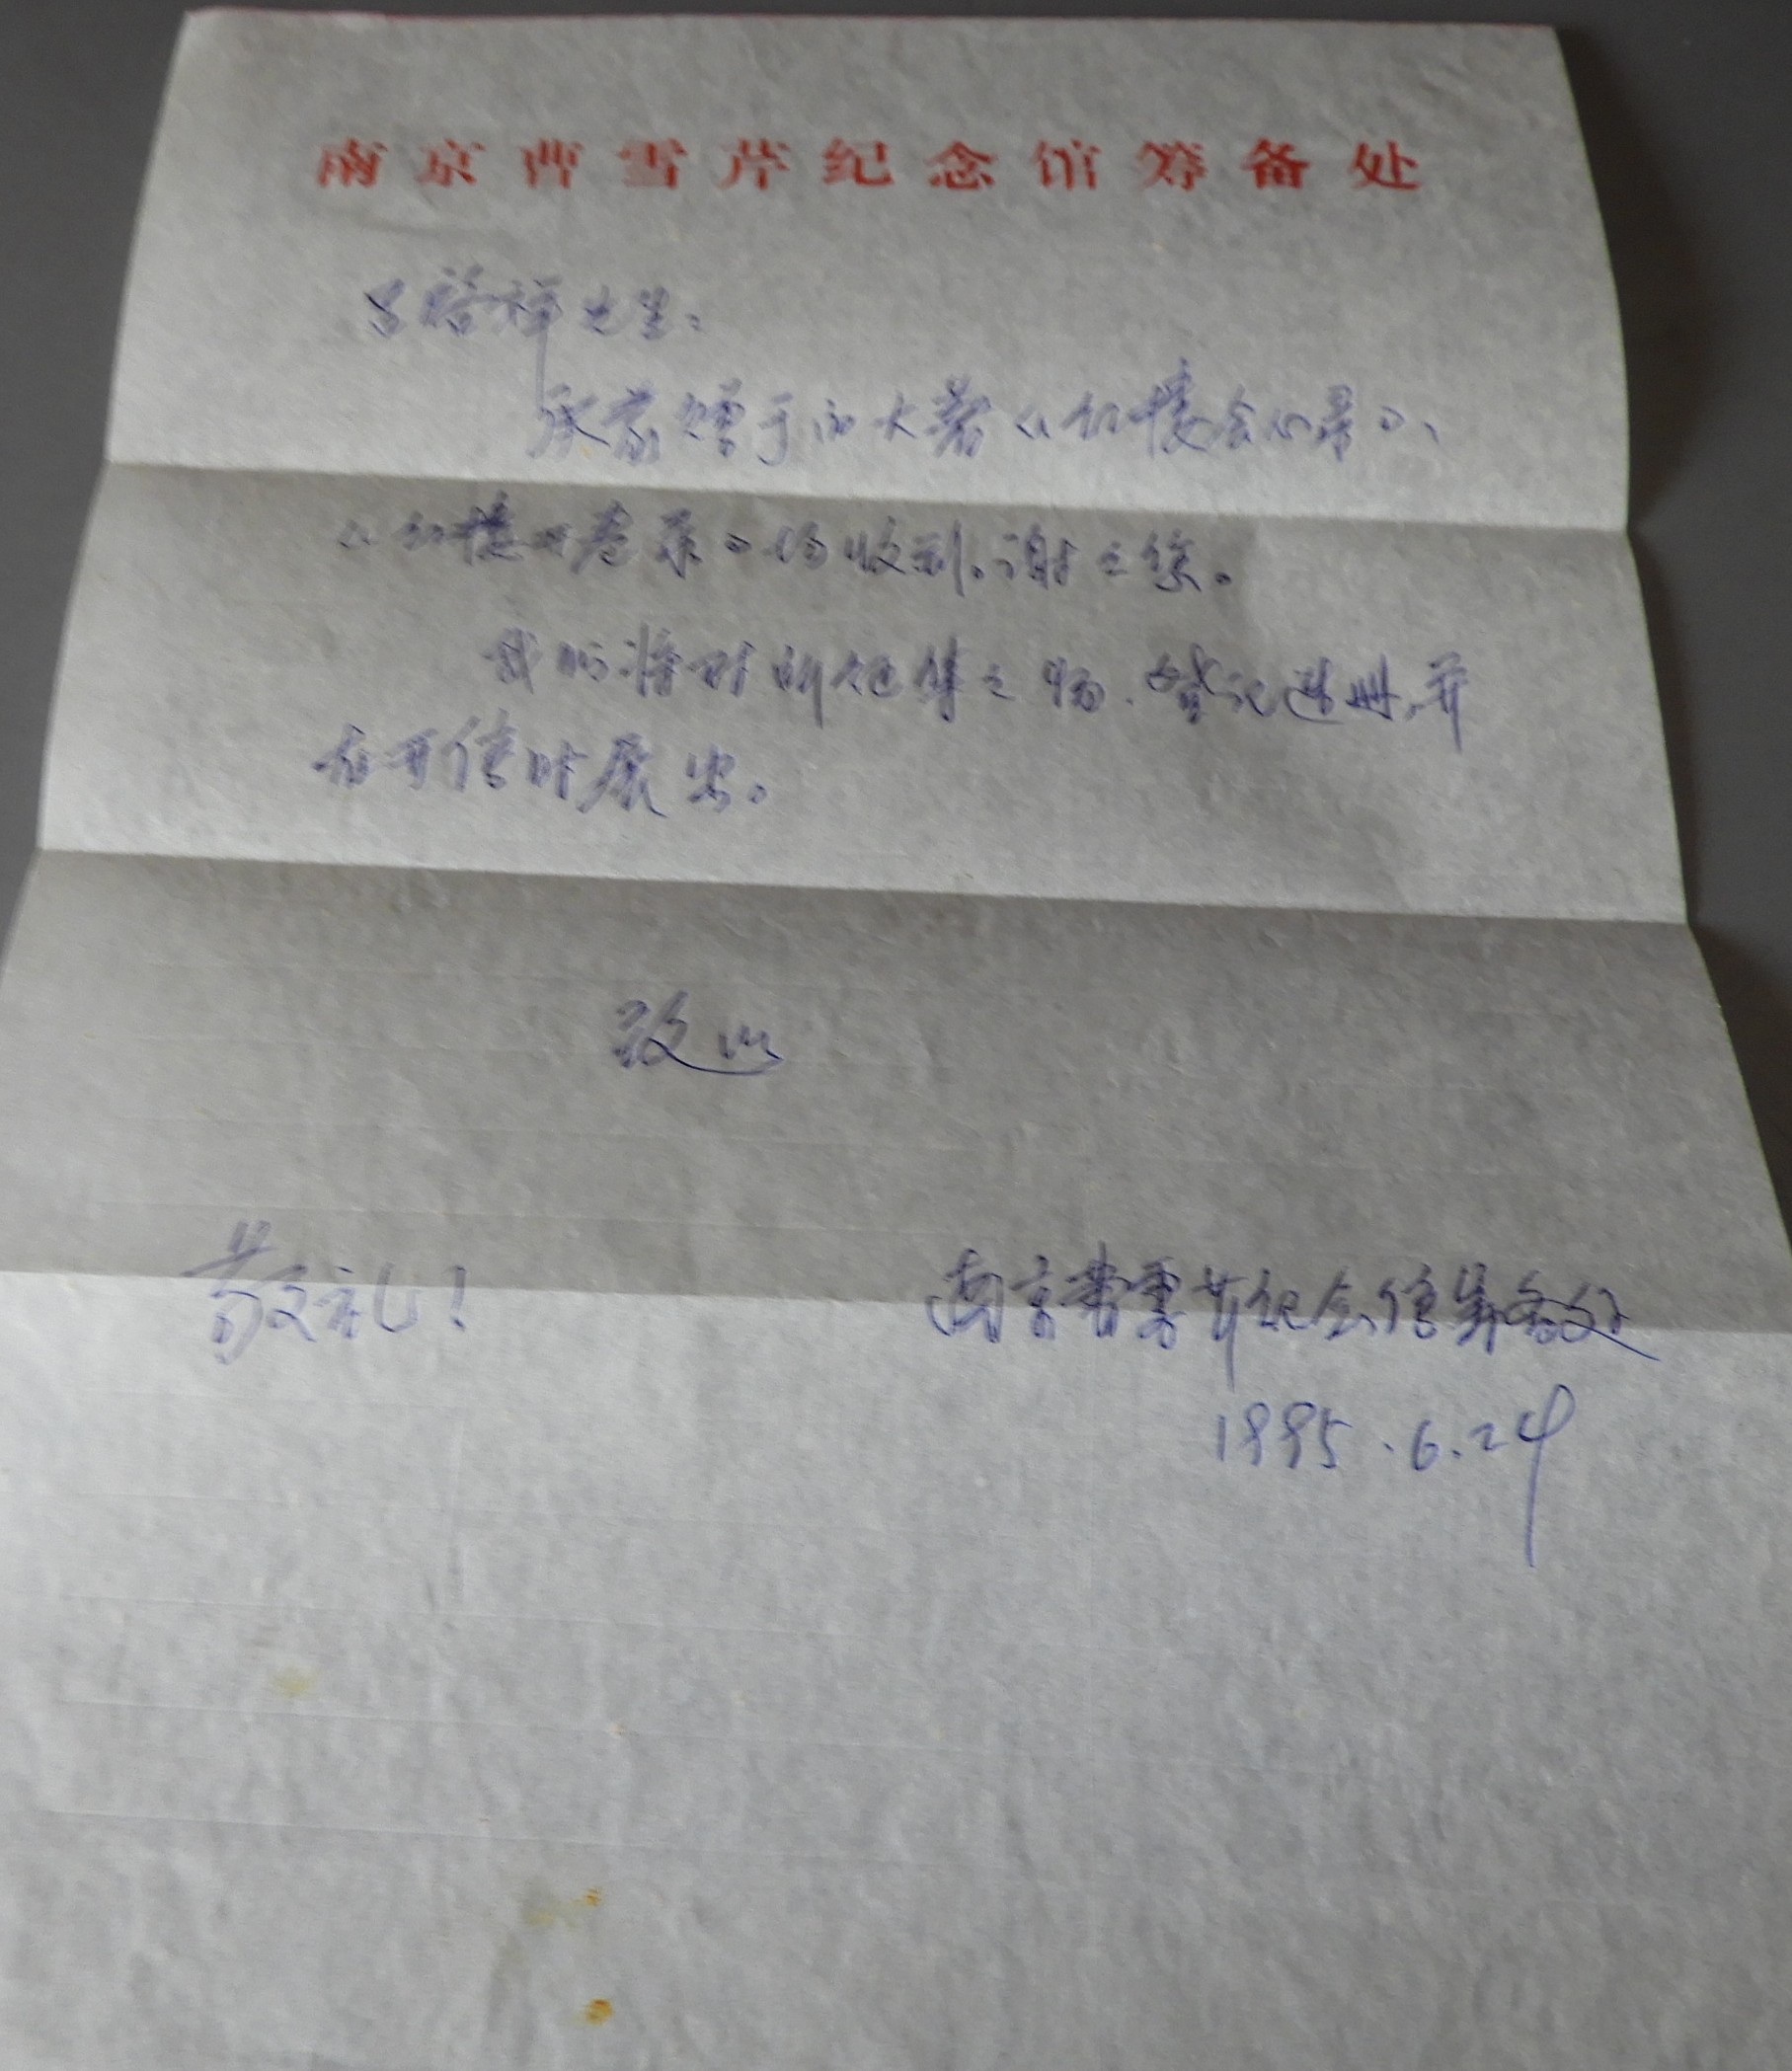 南京曹雪芹纪念馆筹备处
吕启祥先生：
承蒙赠予的大著《红楼会心录》、
《红楼开卷录》均收到。谢谢您。
我们将对所征集之物，登记造册，并
在开馆时展出。
致以
敬礼！
南京曹雪芹纪念馆筹备处
1995.6.24